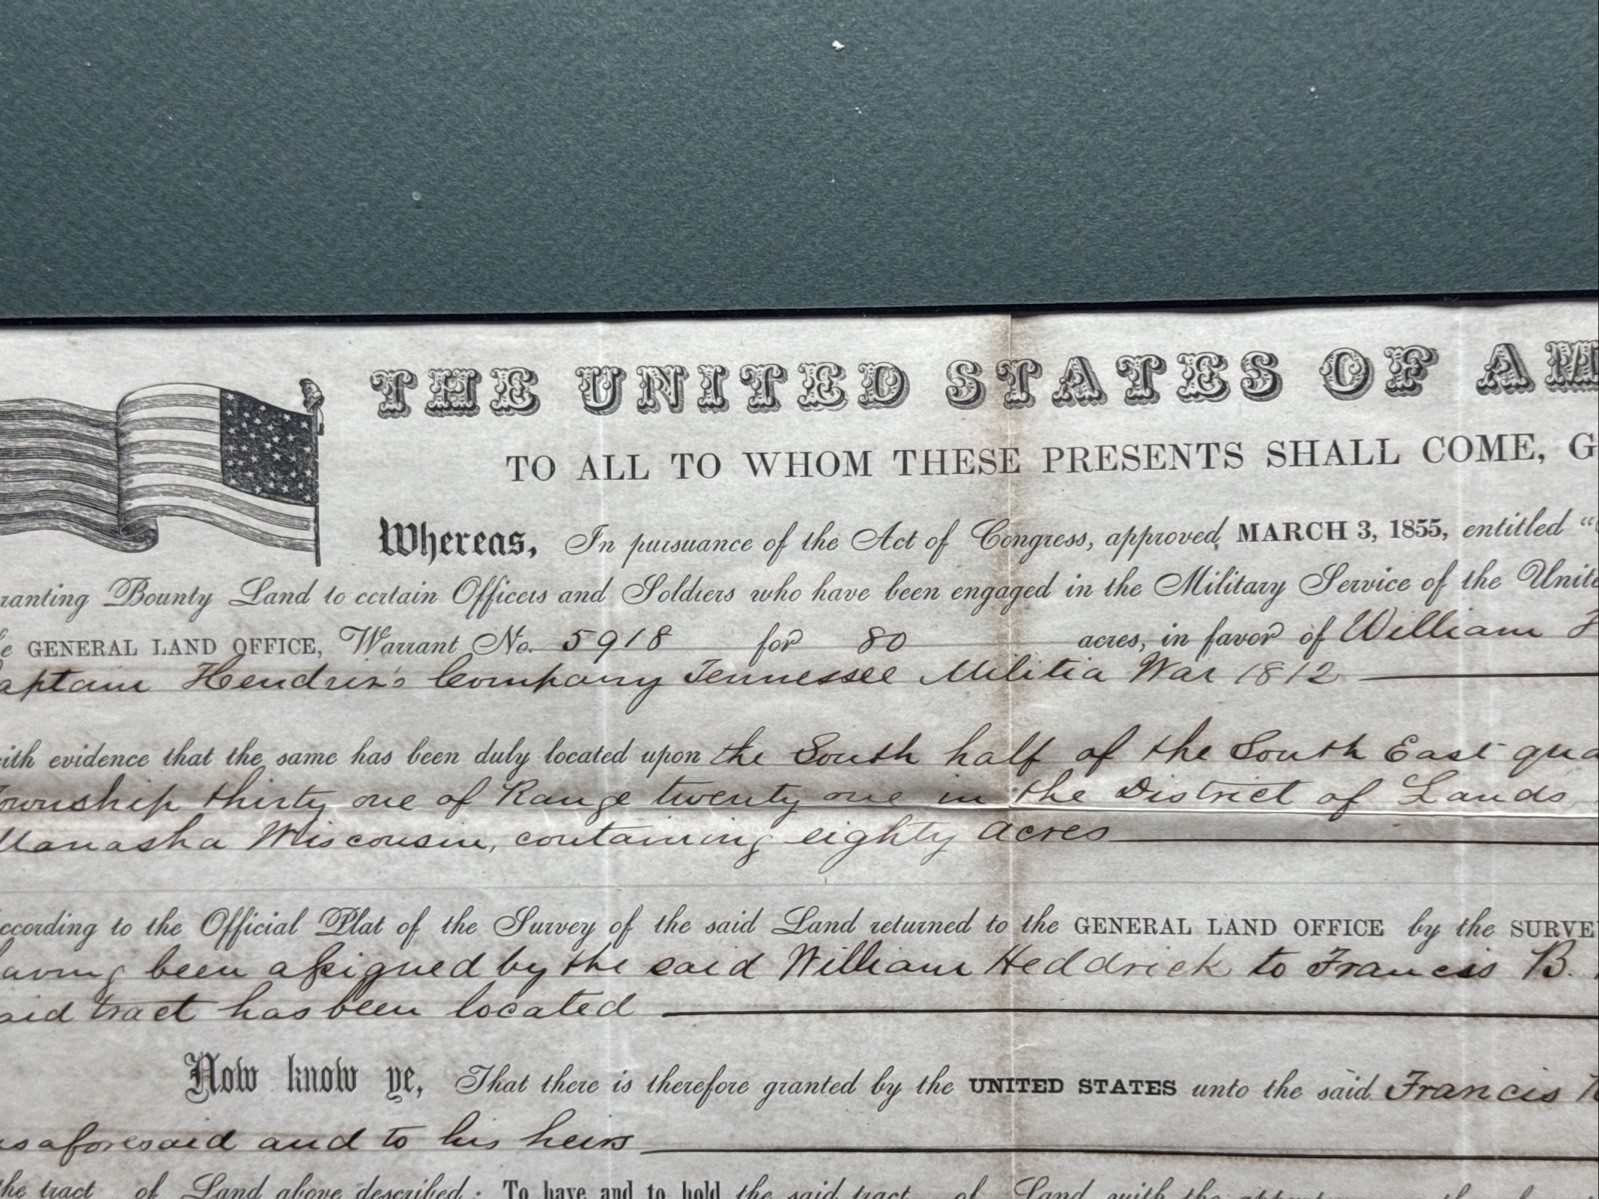 THE UNITED STATES OF AM
TO ALL TO WHOM THESE PRESENTS SHALL COME, G
Whereas, In pursuance of the Act of Congress, approved, MARCH 3, 1855, entitled "
ranting Bounty Land to certain Officers and Soldiers who have been engaged in the Military Service of the Unite
e GENERAL LAND OFFICE, Warrant No. 5918 for 80 acres, in favor of William H
aptain Hendrix's Company Tennessee Militia War 1812
ith evidence that the same has been duly located upon the South half of the South East qua
Township thirty one of Range twenty one in the District of Lands
Manasha Wisconsin, containing eighty acres
ccording to the Official Plat of the Survey of the said Land returned to the GENERAL LAND OFFICE by the SURVE
aving been assigned by the said William Heddrick to Francis B.
aid tract has been located
Now know ye, That there is therefore granted by the UNITED STATES unto the said Francis
as aforesaid and to his heirs
the tract of Land above described: To have and to hold the said tract of Land, with the